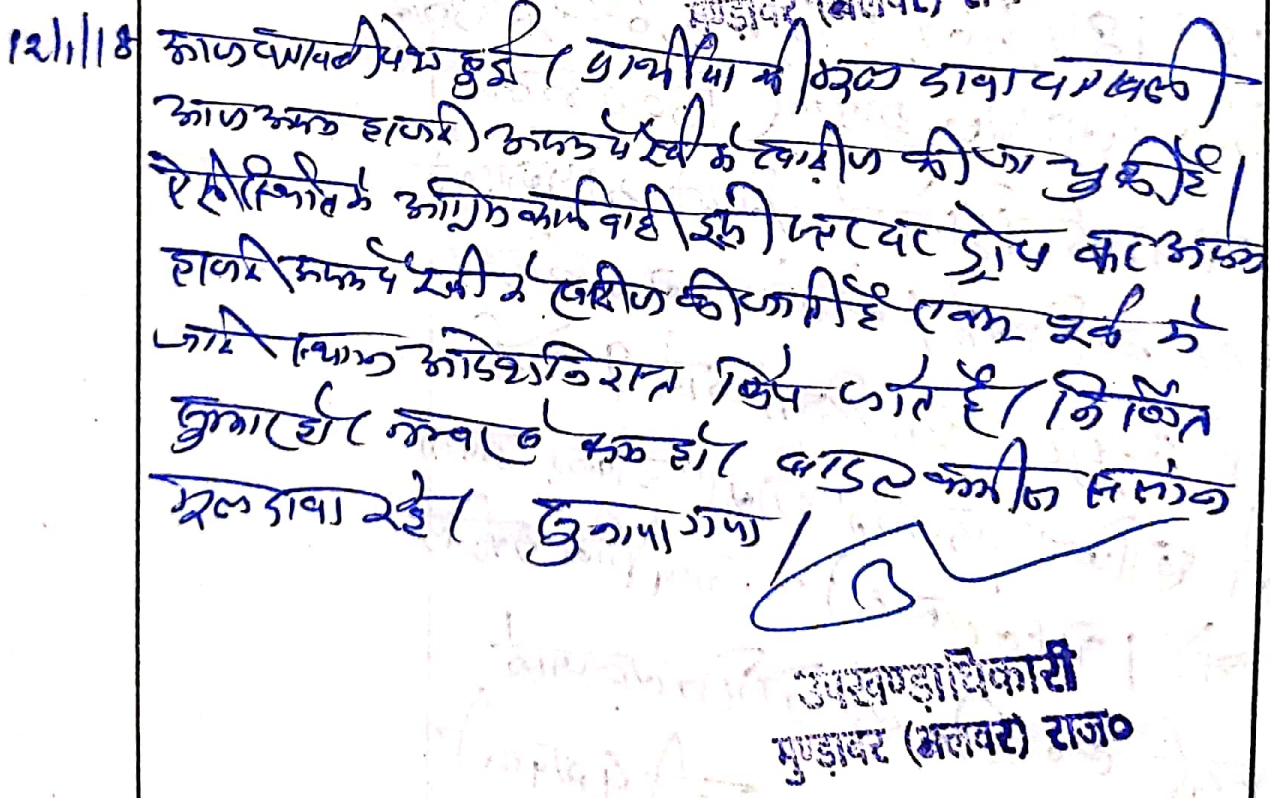 मुण्डावर (अलवर)
12/1/18 आज पत्रावली पेश हुई। प्रार्थीया की मूल दावा पत्रावली
आज अदम हाजरी अदम पैरवी में खारीज की जा चुकी है।
ऐसी स्थिति में अग्रिम कार्यवाही इसी स्तर पर ड्रोप कर अदम
हाजरी अदम पैरवी में खारीज की जाती है एवम पूर्व में
जारी स्थगन आदेश निरस्त किये जाते है। निर्णित
शुमार हो। नम्बर से कम हो। बाद तकमील संलग्न
मूल दावा रहे। सुनाया गया
उपखण्डाधिकारी
मुण्डावर (अलवर) राज०